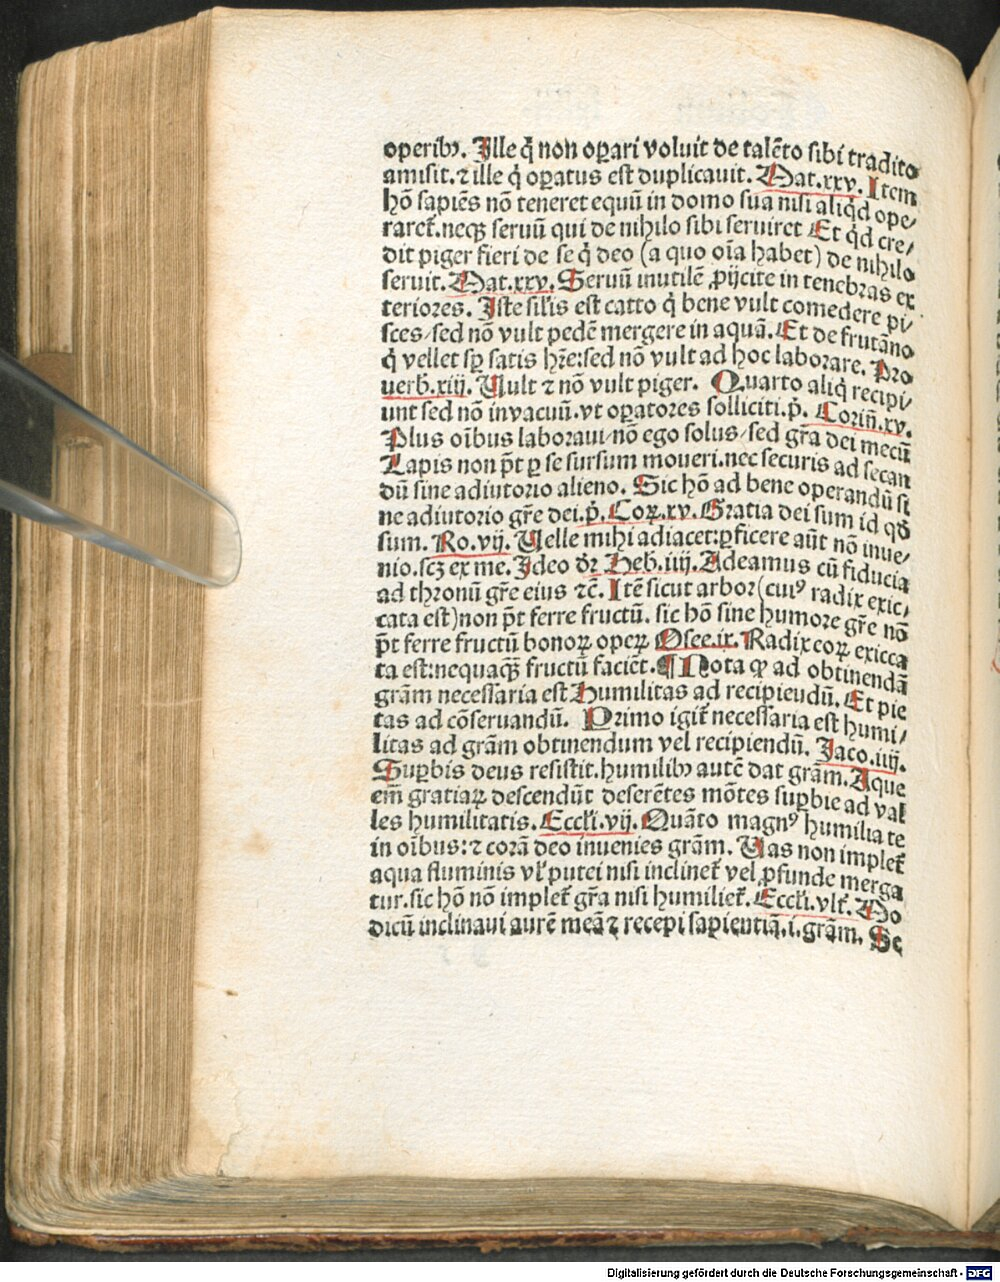 operibꝰ. Ille q̇ non oꝑari voluit de talēto sibi tradito
amisit. ⁊ ille q̇ oꝑatus est duplicauit. Mat.xxv. Item
hō sapiēs nō teneret equū in domo sua nisi aliq̇d ope/
raret̃. neqꝫ seruū qui de nihilo sibi seruiret Et q̇d cre/
dit piger fieri de se q̇ deo (a quo oīa habet) de nihilo
seruit. Mat.xxv. Seruū inutilē ꝓijcite in tenebras ex
teriores. Iste sil̃is est catto q̇ bene vult comedere pi/
sces/sed nō vult pedē mergere in aquā. Et de frutāno
q̇ vellet sꝑ satis hr̃e:sed nō vult ad hoc laborare. Pro
uerb̃.xiij. Uult ⁊ nō vult piger. Quarto aliq̇ recipi/
unt sed nō invacuū. vt oꝑatores solliciti. p̃. Corin̄.xv.
Plus oībus laboraui/nō ego solus/sed gr̃a dei mecū
Lapis non pōt ꝑ se sursum moueri. nec securis ad secan
dū sine adiutorio alieno. Sic hō ad bene operandū si
ne adiutorio gr̃e dei. p̃. Coꝝ.xv. Gratia dei sum id qđ
sum. Ro.vij. Uelle mihi adiacet:ꝑficere aūt nō inue/
nio. scꝫ ex me. Ideo dr̃ Heb̃.iiij. Adeamus cū fiducia
ad thronū gr̃e eius ⁊c̃. Itē sicut arbor (cuiꝰ radix exic/
cata est) non pōt ferre fructū. sic hō sine humore gr̃e nō
pōt ferre fructū bonoꝝ opeꝝ Osee.ix. Radix eoꝝ exicca
ta est:nequaqꝫ fructū faciēt. ¶ Nota ꝙ ad obtinendā
grām necessaria est Humilitas ad recipieudū. Et pie
tas ad cōseruandū. Primo igit̃ necessaria est humi/
litas ad grām obtinendum vel recipiendū. Jaco.iiij.
Suꝑbis deus resistit. humilibꝰ autē dat grām. Aque
em̄ gratiaꝝ descendūt deserētes mōtes suꝑbie ad val
les humilitatis. Eccl̃i.vij. Quāto magnꝰ humilia te
in oībus:⁊ corā deo inuenies grām. Uas non implet̃
aqua fluminis vl̃ putei nisi inclinet̃ vel ꝓfunde merga
tur. sic hō nō implet̃ gr̃a nisi humiliet̃. Eccl̃i.vlt̃. Mo
dicū inclinaui aurē meā ⁊ recepi sapientiā. i. grām. Se
Digitalisierung gefördert durch die Deutsche Forschungsgemeinschaft - DFG